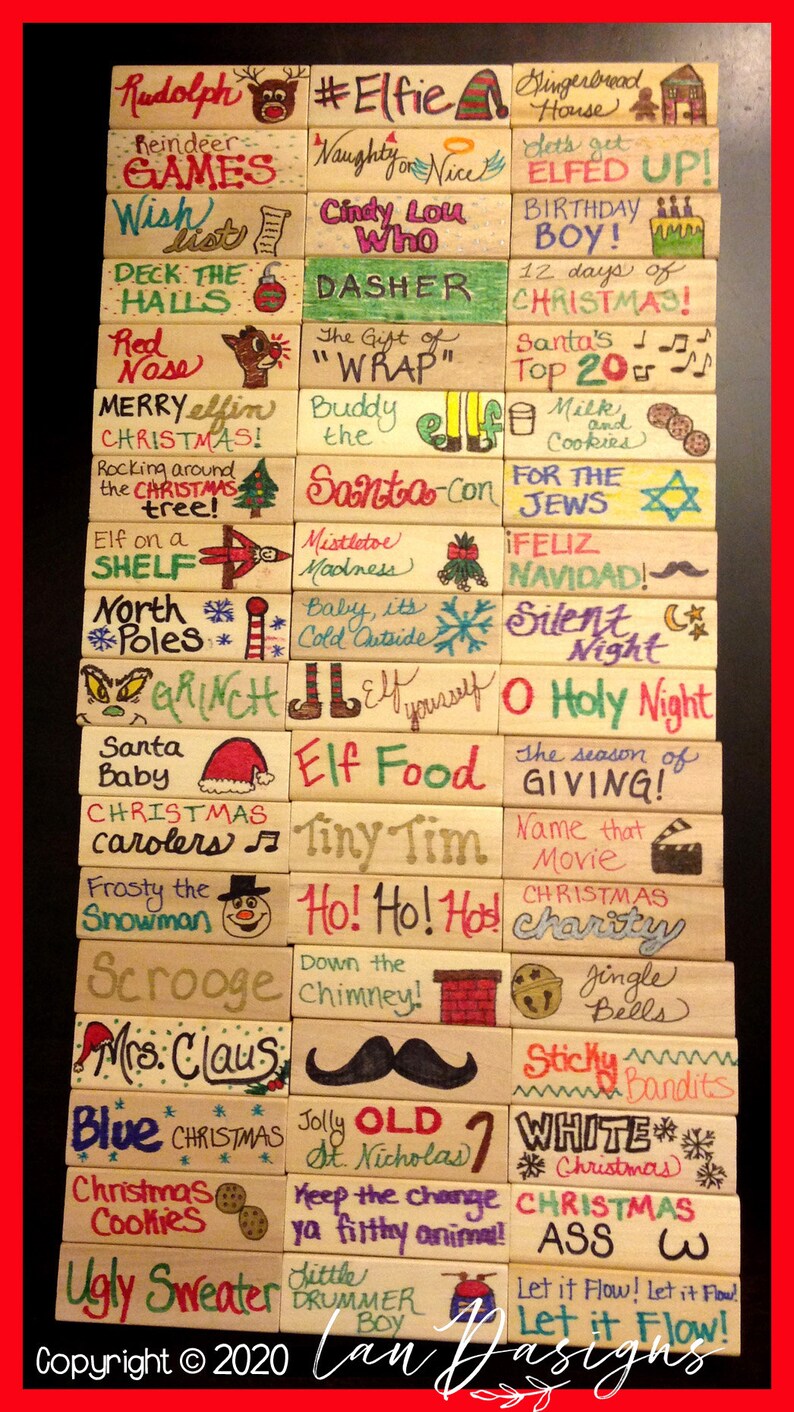 Rudolph
#Elfie
Gingerbread
House
Reindeer
GAMES
Naughty
or Nice
Let's get
ELFED UP!
Wish
list
Cindy Lou
Who
BIRTHDAY
BOY!
DECK THE
HALLS
DASHER
12 days of
CHRISTMAS!
Red
Nose
The Gift of
"WRAP"
Santa's
Top 20
MERRY elfin
CHRISTMAS!
Buddy
the elf
Milk
and
Cookies
Rocking around
the CHRISTMAS
tree!
Santa-con
FOR THE
JEWS
Elf on a
SHELF
Mistletoe
Madness
¡FELIZ
NAVIDAD!
North
Poles
Baby, it's
Cold Outside
Silent
Night
GRINCH
Elf
yourself
O Holy Night
Santa
Baby
Elf Food
The season of
GIVING!
CHRISTMAS
carolers
Tiny Tim
Name that
Movie
Frosty the
Snowman
Ho! Ho! Ho's!
CHRISTMAS
charity
Scrooge
Down the
Chimney!
Jingle
Bells
Mrs. Claus
Sticky
Bandits
Blue CHRISTMAS
Jolly OLD
St. Nicholas
WHITE
Christmas
Christmas
Cookies
Keep the change
ya filthy animal!
CHRISTMAS
ASS
Ugly Sweater
Little
DRUMMER
BOY
Let it Flow! Let it Flow!
Let it Flow!
Copyright © 2020 LanDasigns